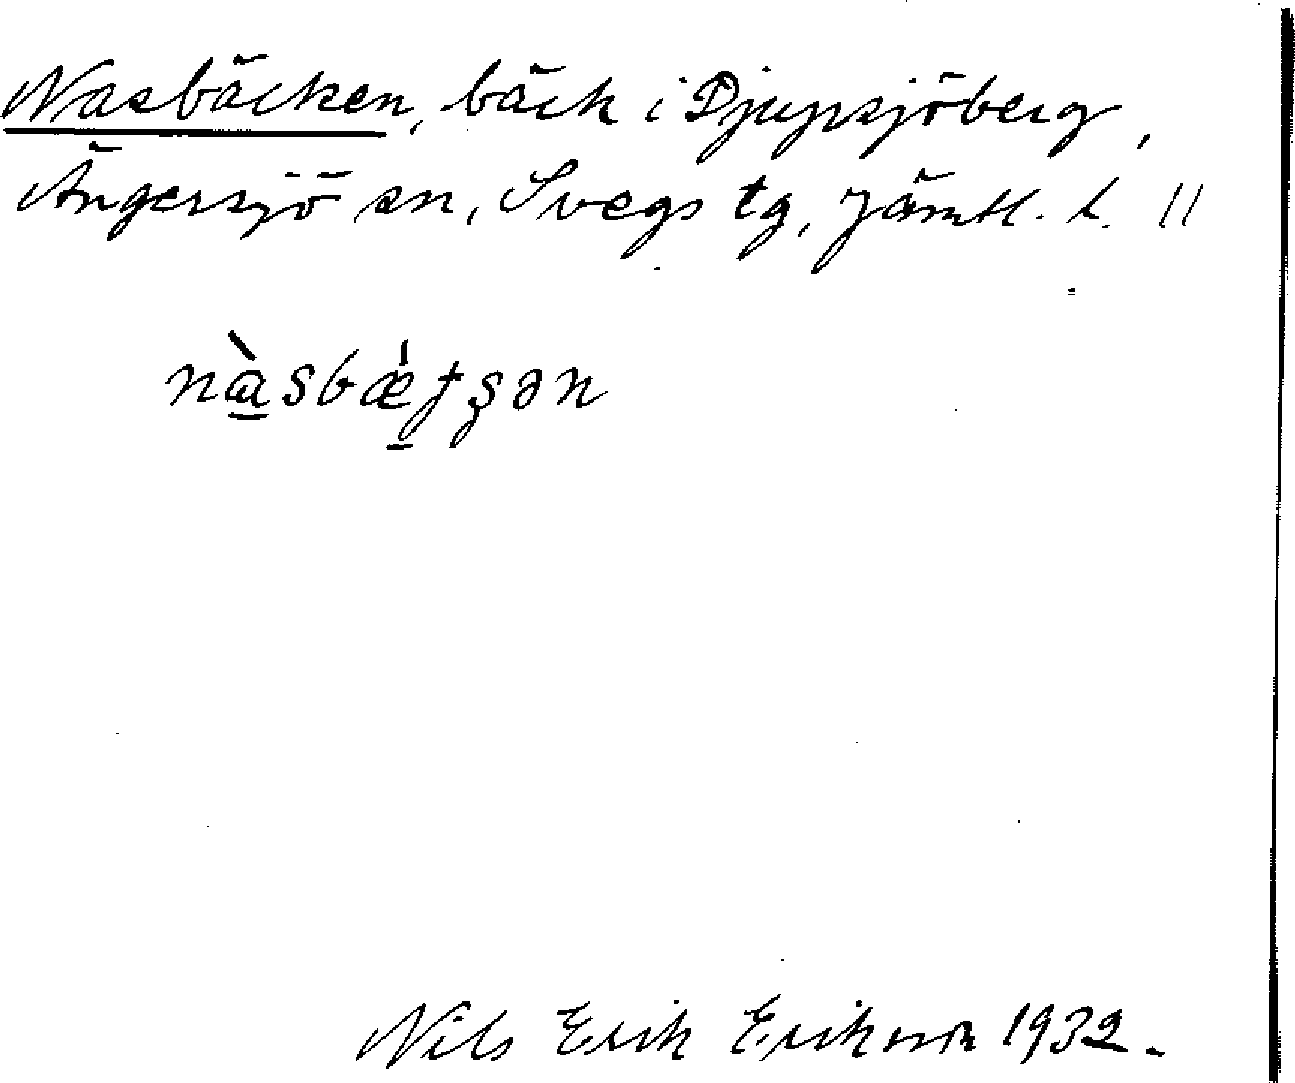 Nasbäcken, bäck i Djupsjöberg,
Ängersjö sn, Svegs tg, Jämtl. l. 11
nàsbæ̀tʂən
Nils Erik Eriksson 1932.